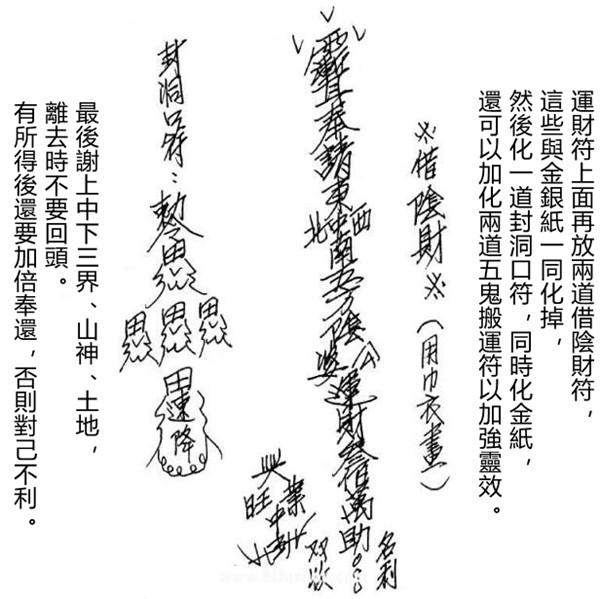 運財符上面再放兩道借陰財符，
這些與金銀紙一同化掉，
然後化一道封洞口符，同時化金紙，
還可以加化兩道五鬼搬運符以加強靈效。
※借陰財※（用巾衣畫）
奉請東西中南北五方陰公婆運財
萬助
名利
双收
興旺
業中
封洞口符：
田
田 田 田
田
速降
最後謝上中下三界、山神、土地，
離去時不要回頭。
有所得後還要加倍奉還，否則對己不利。